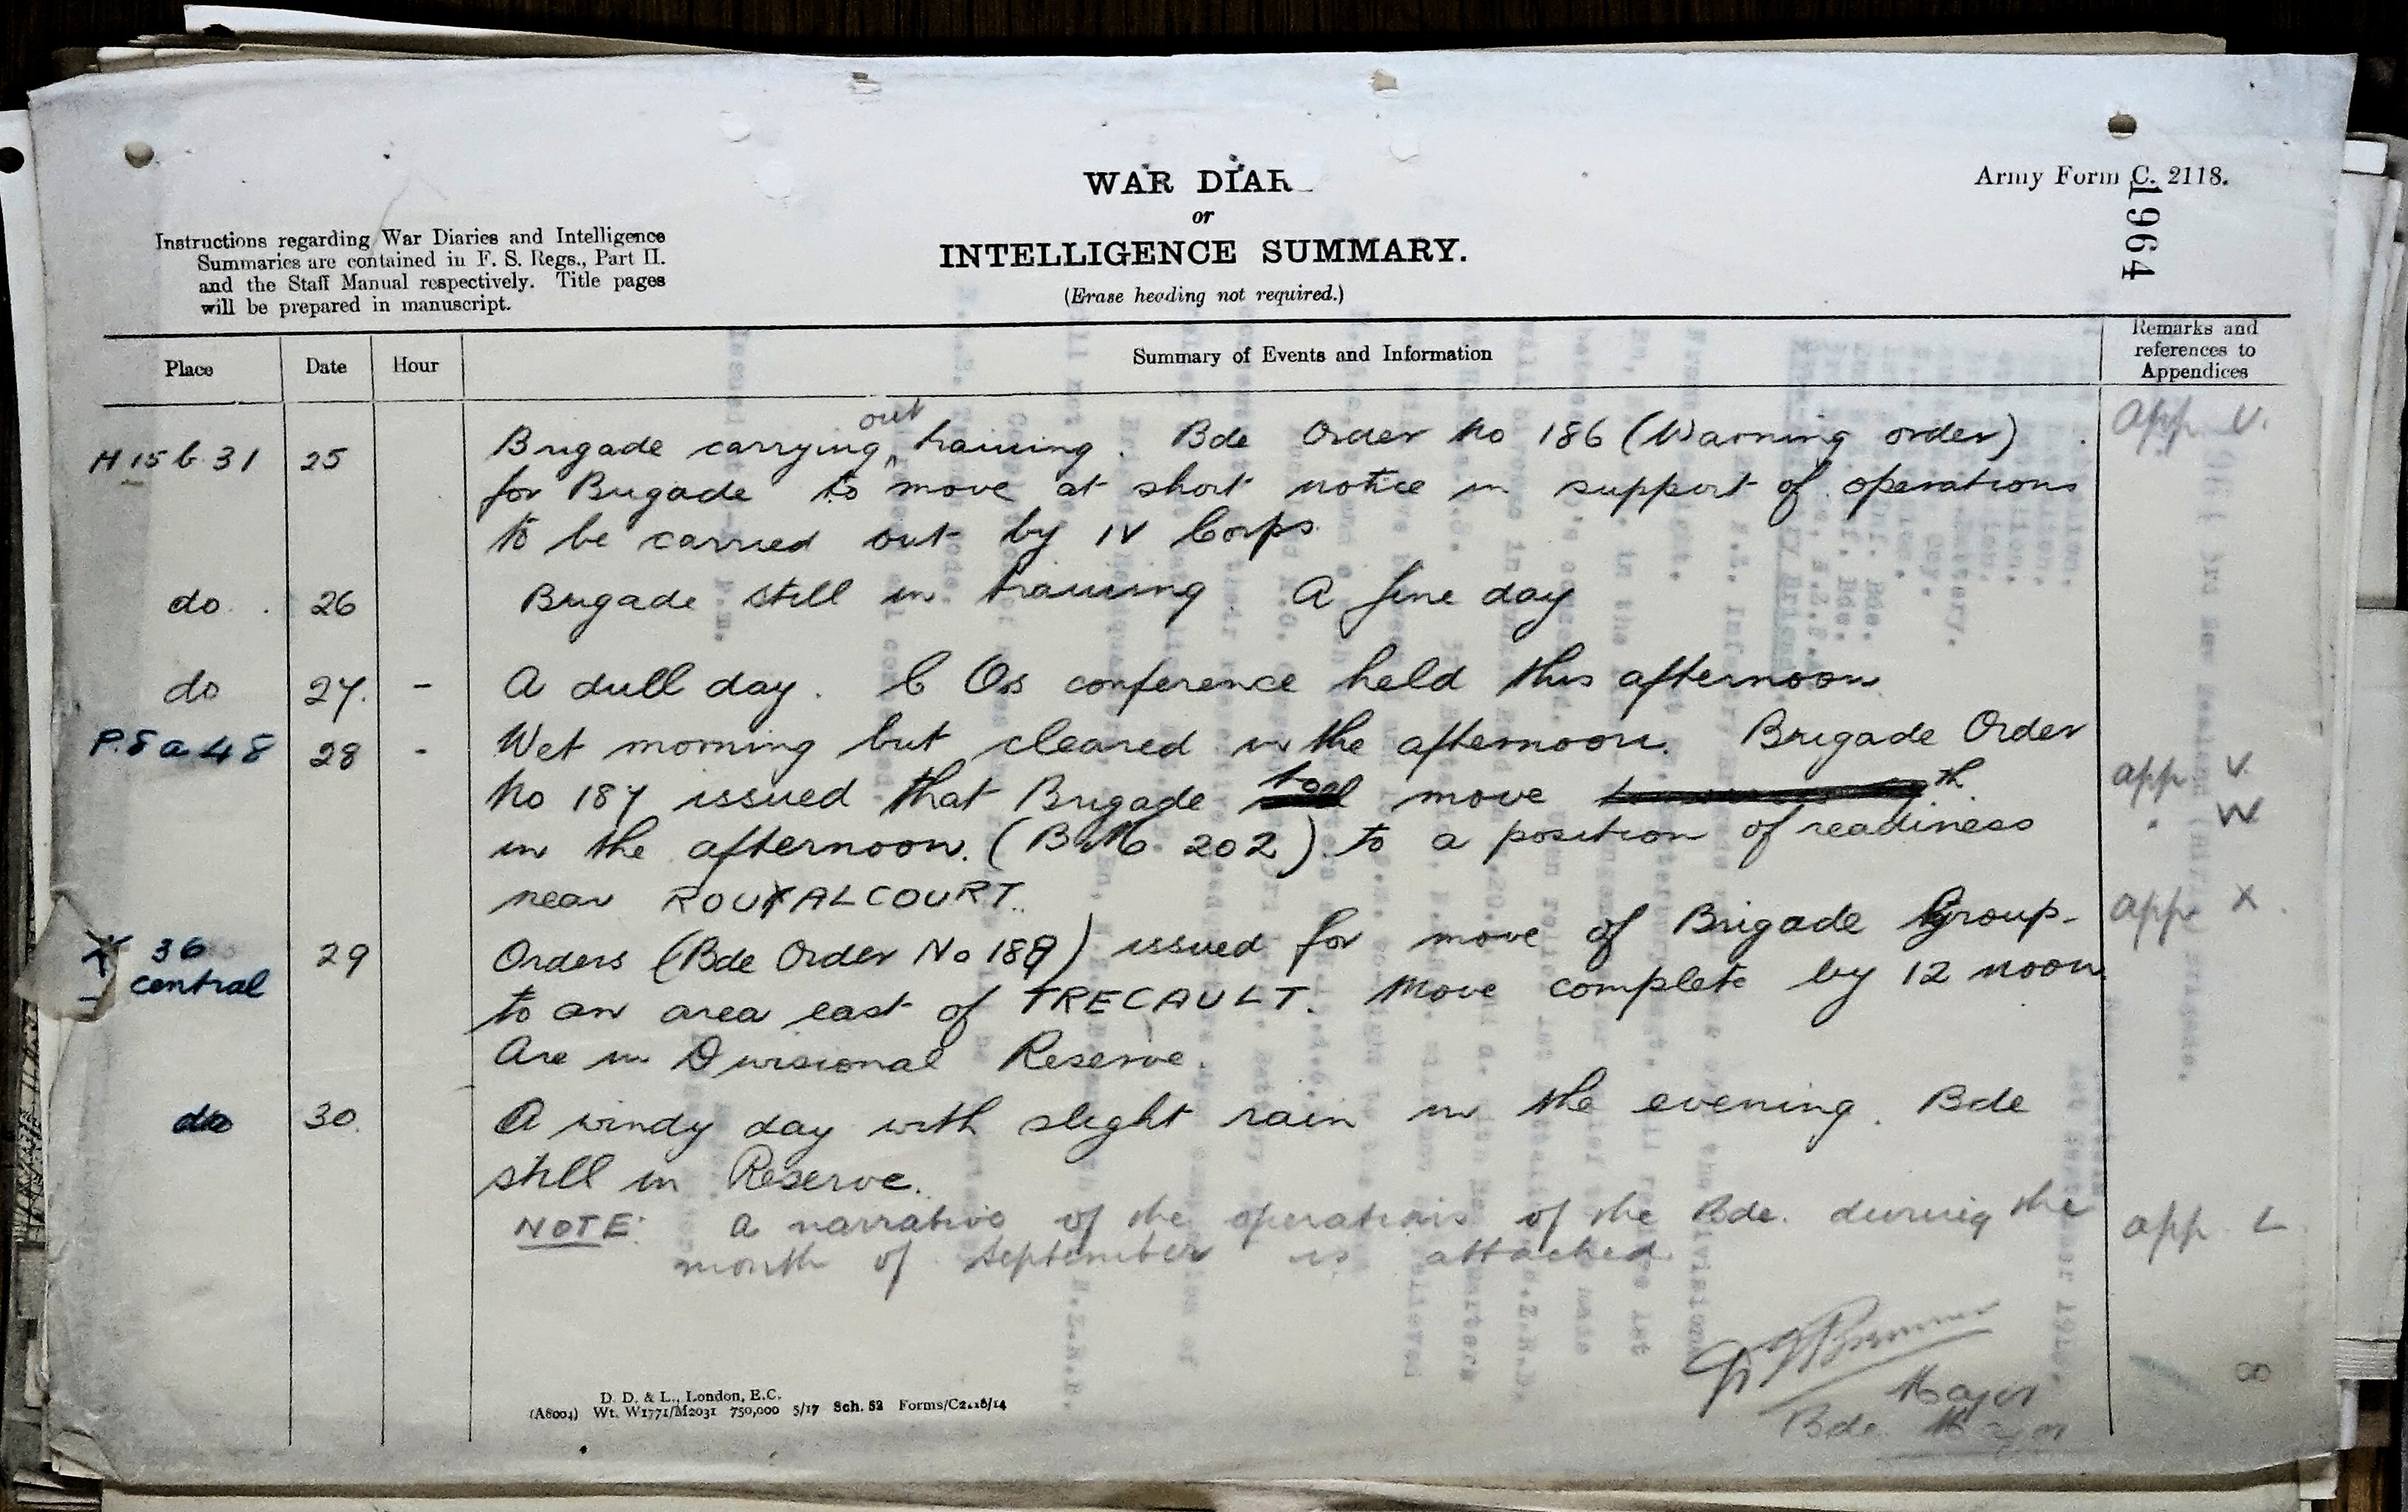 WAR DIAR
or
INTELLIGENCE SUMMARY.
(Erase heading not required.)
Army Form C. 2118.
1964
Instructions regarding War Diaries and Intelligence
Summaries are contained in F. S. Regs., Part II.
and the Staff Manual respectively. Title pages
will be prepared in manuscript.
Place Date Hour Summary of Events and Information Remarks and
references to
Appendices
H 15 b 31 25 Brigade carrying out training. Bde Order No 186 (Warning order) app U.
for Brigade to move at short notice in support of operations
to be carried out by IV Corps
do. 26 Brigade still in training. A fine day
do 27. - A dull day. C Os conference held this afternoon
P.8 a 48 28 - Wet morning but cleared in the afternoon. Brigade Order
No 187 issued that Brigade move th app V.
in the afternoon. (BM 202) to a position of readiness " W
near ROUYALCOURT.
36 29 Orders (Bde Order No 189) issued for move of Brigade Group- app X.
central to an area east of TRECAULT. Move complete by 12 noon
Are in Divisional Reserve.
do 30. A windy day with slight rain in the evening. Bde
still in Reserve.
NOTE: A narrative of the operations of the Bde. during the app L
month of September is attached
Major
Bde Major
8
D. D. & L., London, E.C.
(A8004) Wt. W1771/M2031 750,000 5/17 Sch. 52 Forms/C2118/14